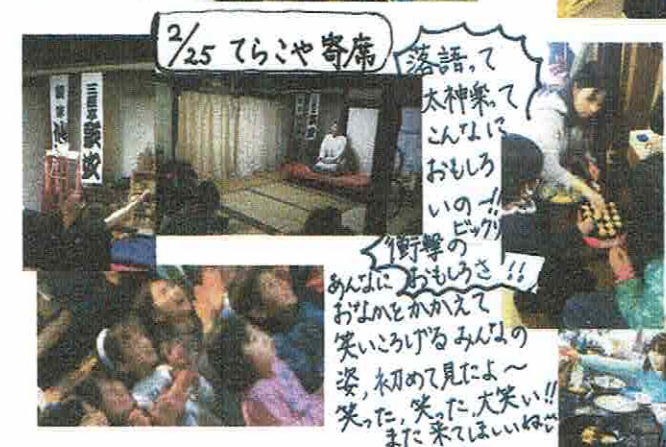 2/25 てらこや寄席
落語って
太神楽って
こんなに
おもしろ
いの〜!!
ビックリ
衝撃の
おもしろさ!!
あんなに
おなかをかかえて
笑いころげるみんなの
姿,初めて見たよ〜
笑った,笑った,大笑い!!
また来てほしいね